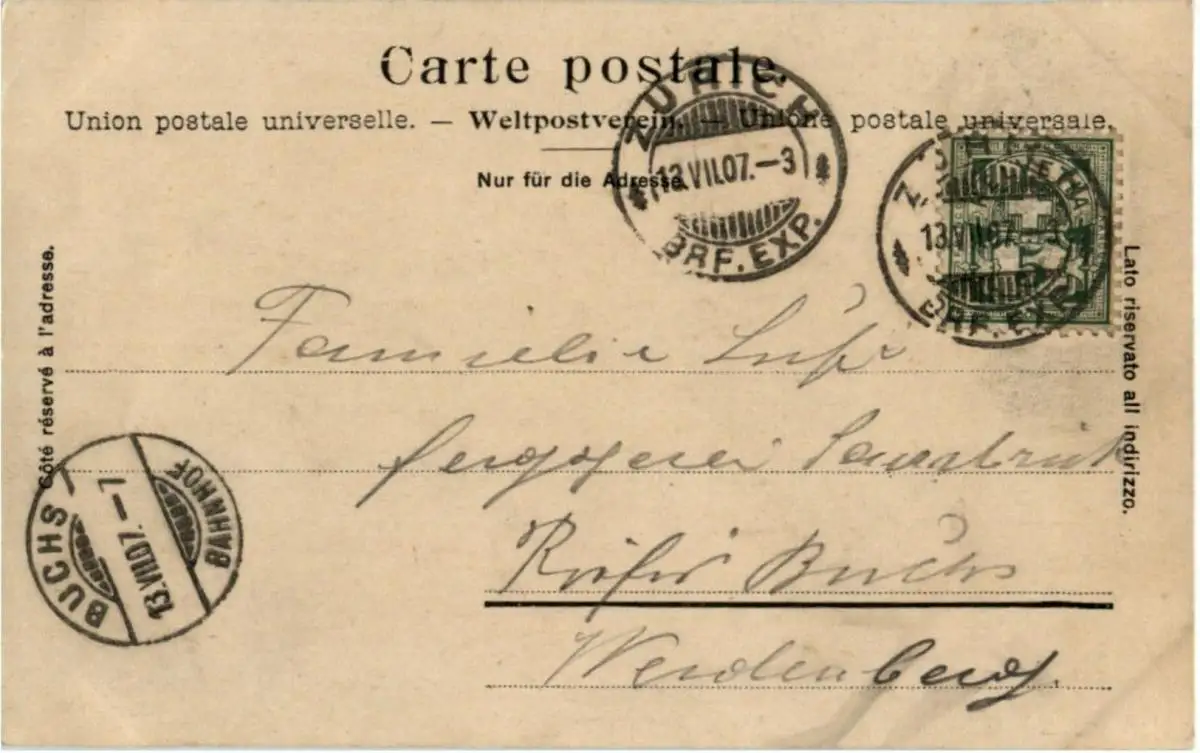 Carte postale.
Union postale universelle. — Weltpostverein. — Unione postale universale.
Nur für die Adresse.
ZÜRICH
13.VII.07.—3
BRF. EXP.
HELVETIA
13.VII.07.—3
BRF. EXP.
5
Côté réservé à l'adresse.
Lato riservato all indirizzo.
Familie
Buchs
Werdenberg.
BUCHS
13.VII.07.—7
BAHNHOF